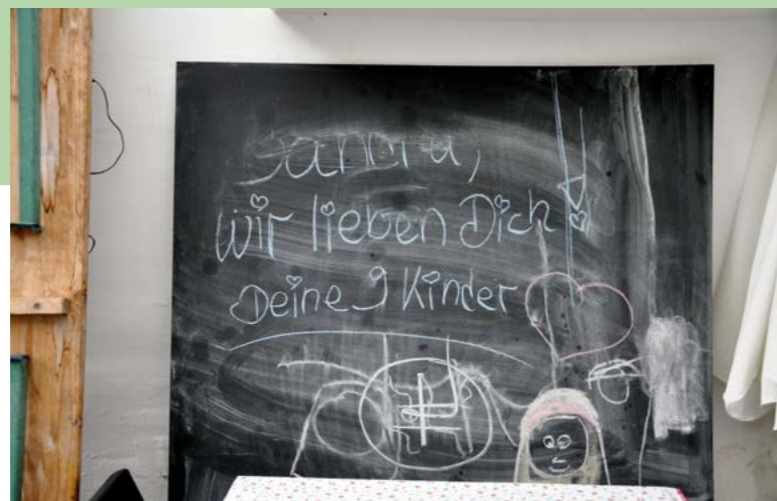 Sandra,
wir lieben Dich
Deine 9 Kinder